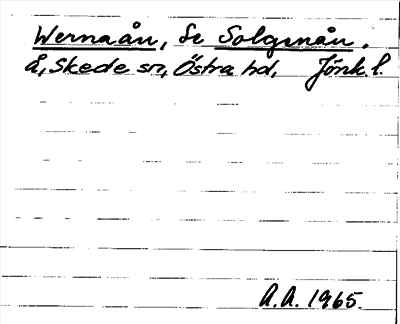 Wernaån, Se Solgenån.
å, Skede sn, Östra hd, Jönk. l.
A.A. 1965.